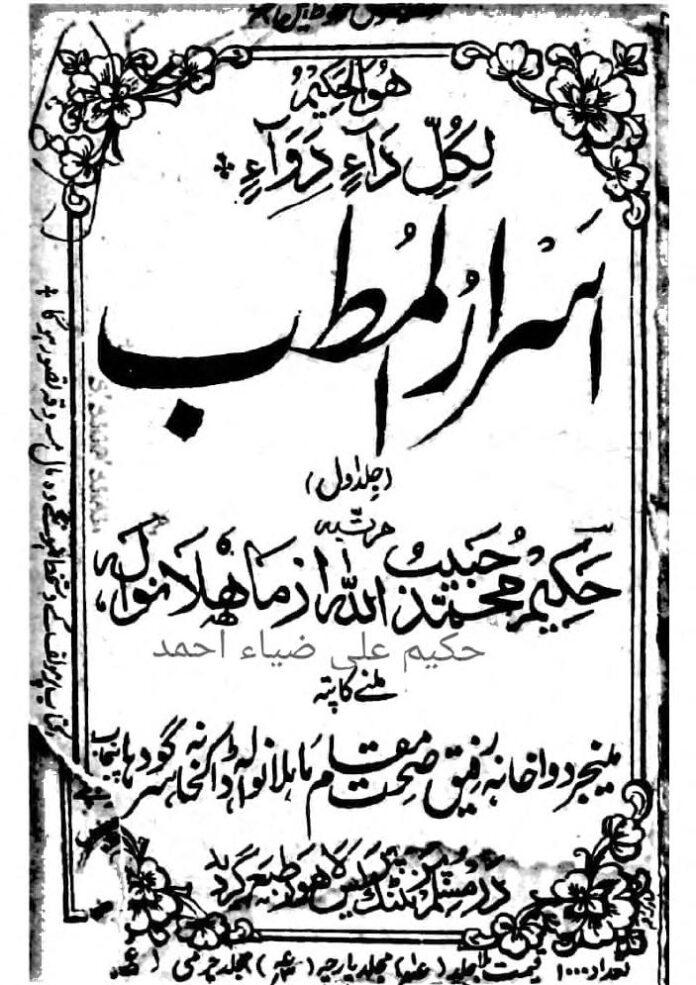 هو الحکیم
لِکُلِّ دَآءٍ دَوَآءٌ
اسرار المطب
(جلد اول)
مرتبہ
حکیم محمد حبیب اللہ از ماھلانوالہ
حکیم علی ضیاء احمد
ملنے کا پتہ
مینیجر دواخانہ رفیق صحت مقام ماہلانوالہ ڈاکخانہ سرگودھا پنجاب
لاہور طبع گردید
تعداد ۱۰۰۰ قیمت بلا جلد مجلد پارچہ مجلد چرمی